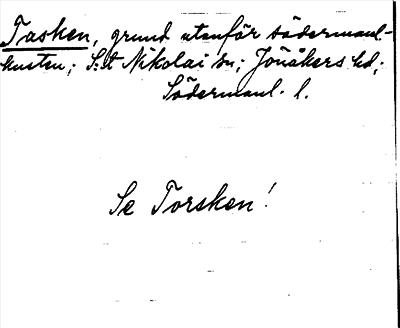 Tasken, grund utanför södermanl-
kusten; S:t Nikolai sn; Jönåkers hd,
Södermanl. l.
Se Torsken!